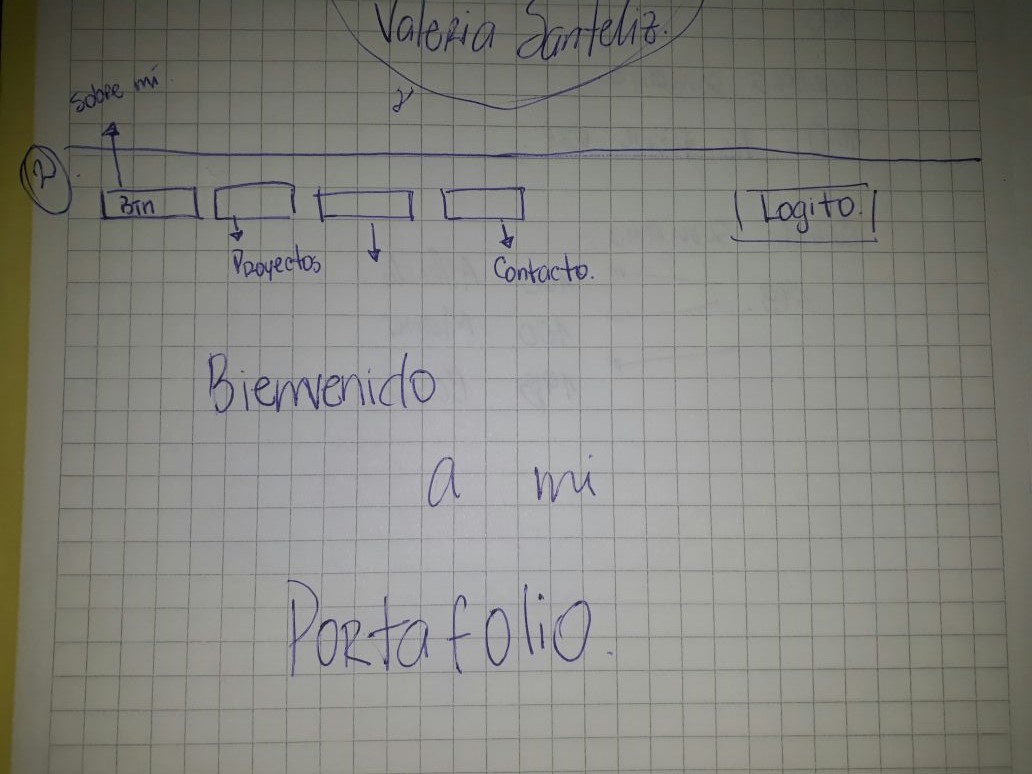 Valeria Santeliz.
Sobre mí
2
Btn
Logito.
Proyectos
Contacto.
Bienvenido
a mi
Portafolio.